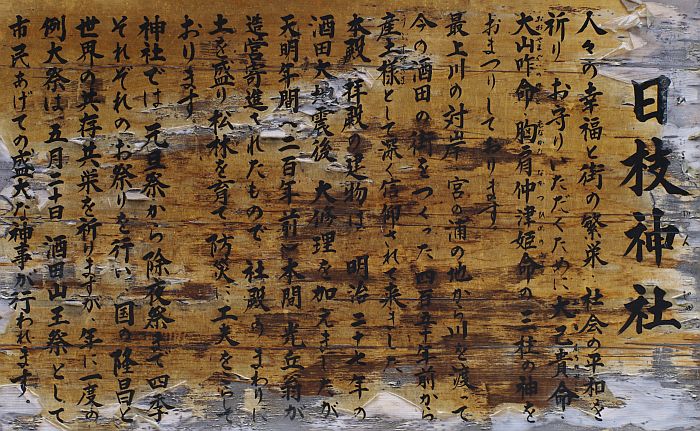 日枝神社
人々の幸福と街の繁栄 社会の平和を
祈り お守りいただくために 大己貴命
大山咋命 胸肩仲津姫命の三柱の神を
おまつりしております。
最上川の対岸 宮の浦の地から川を渡って
今の酒田の街をつくった四百五十年前から
産土様として深く信仰されて来ました。
本殿 拝殿の建物は 明治二十七年の
酒田大地震後 大修理を加えましたが
天明年間(二百年前)本間光丘翁が
造営寄進されたもので 社殿のまわりに
土を盛り松林を育て 防災に工夫をこらして
おります
神社では 元旦祭から除夜祭まで四季
それぞれのお祭りを行い 国の隆昌と
世界の共存共栄を祈りますが 年に一度の
例大祭は 五月二十日 酒田山王祭として
市民あげての盛大な神事が行われます。